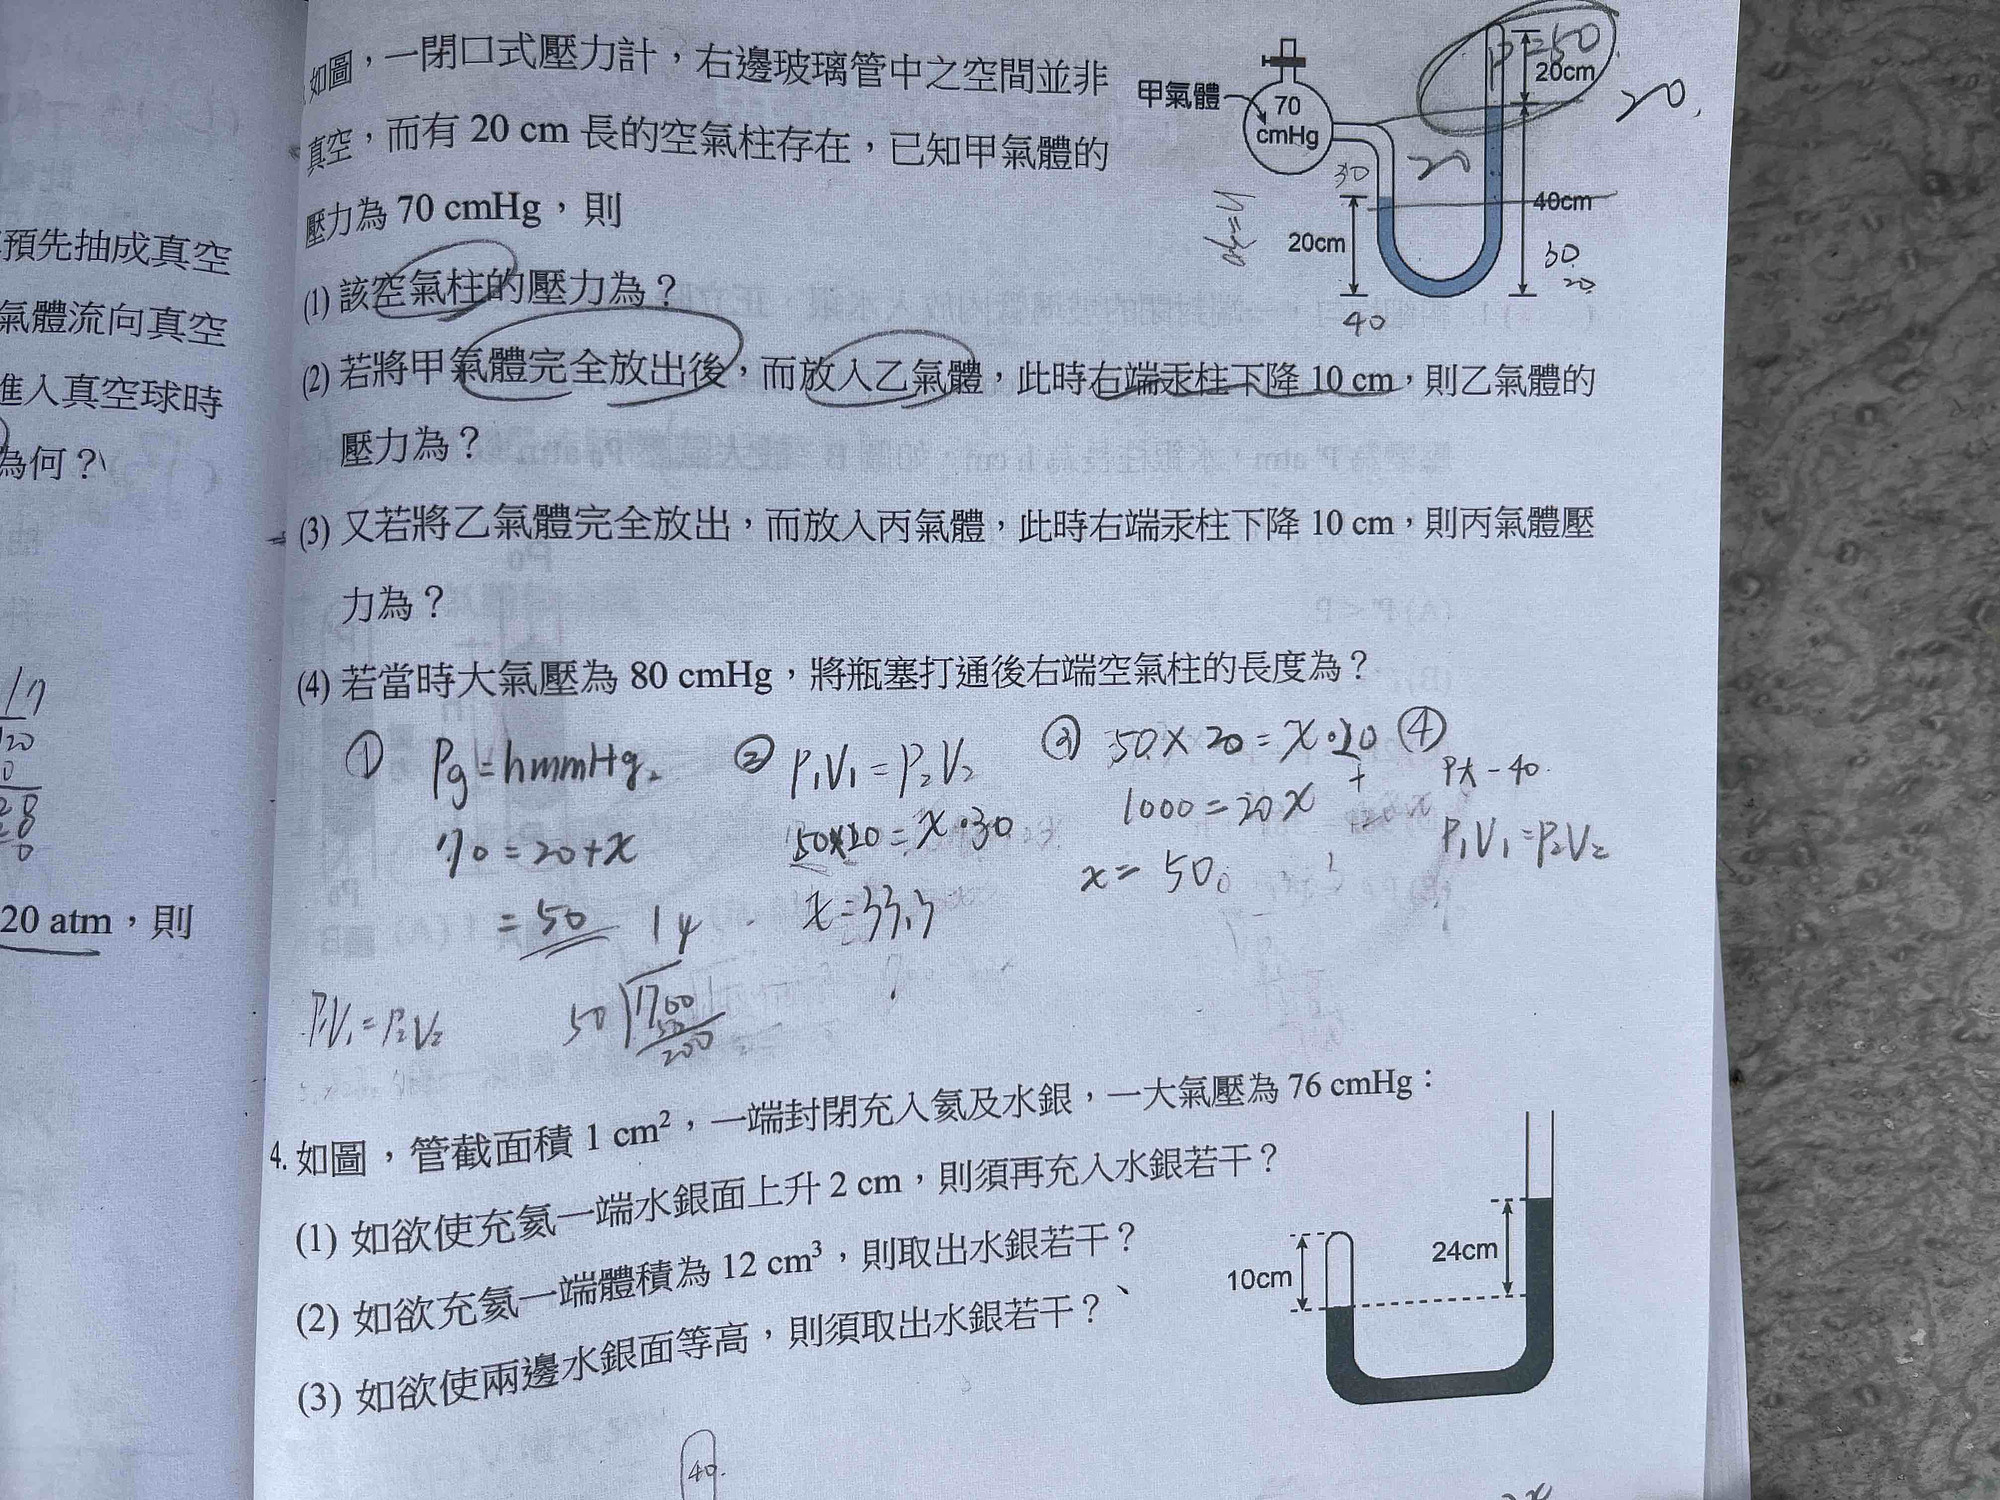 預先抽成真空
氣體流向真空
進入真空球時
為何？
20 atm，則
如圖，一閉口式壓力計，右邊玻璃管中之空間並非
真空，而有 20 cm 長的空氣柱存在，已知甲氣體的
壓力為 70 cmHg，則
甲氣體
70
cmHg
20cm
40cm
20cm
P=50
20
20
30
30
20
40
(1) 該空氣柱的壓力為？
(2) 若將甲氣體完全放出後，而放入乙氣體，此時右端汞柱下降 10 cm，則乙氣體的
壓力為？
(3) 又若將乙氣體完全放出，而放入丙氣體，此時右端汞柱下降 10 cm，則丙氣體壓
力為？
(4) 若當時大氣壓為 80 cmHg，將瓶塞打通後右端空氣柱的長度為？
① Pg=hmmHg
70=20+x
=50
② P₁V₁=P₂V₂
50×20=x·30
x=33.3
③ 50×20=x·20
1000=20x
x=50。
④
P大-40
P₁V₁=P₂V₂
14
P₁V₁=P₂V₂
50
700
200
4. 如圖，管截面積 1 cm²，一端封閉充入氦及水銀，一大氣壓為 76 cmHg：
(1) 如欲使充氦一端水銀面上升 2 cm，則須再充入水銀若干？
(2) 如欲充氦一端體積為 12 cm³，則取出水銀若干？
(3) 如欲使兩邊水銀面等高，則須取出水銀若干？
10cm
24cm
40.